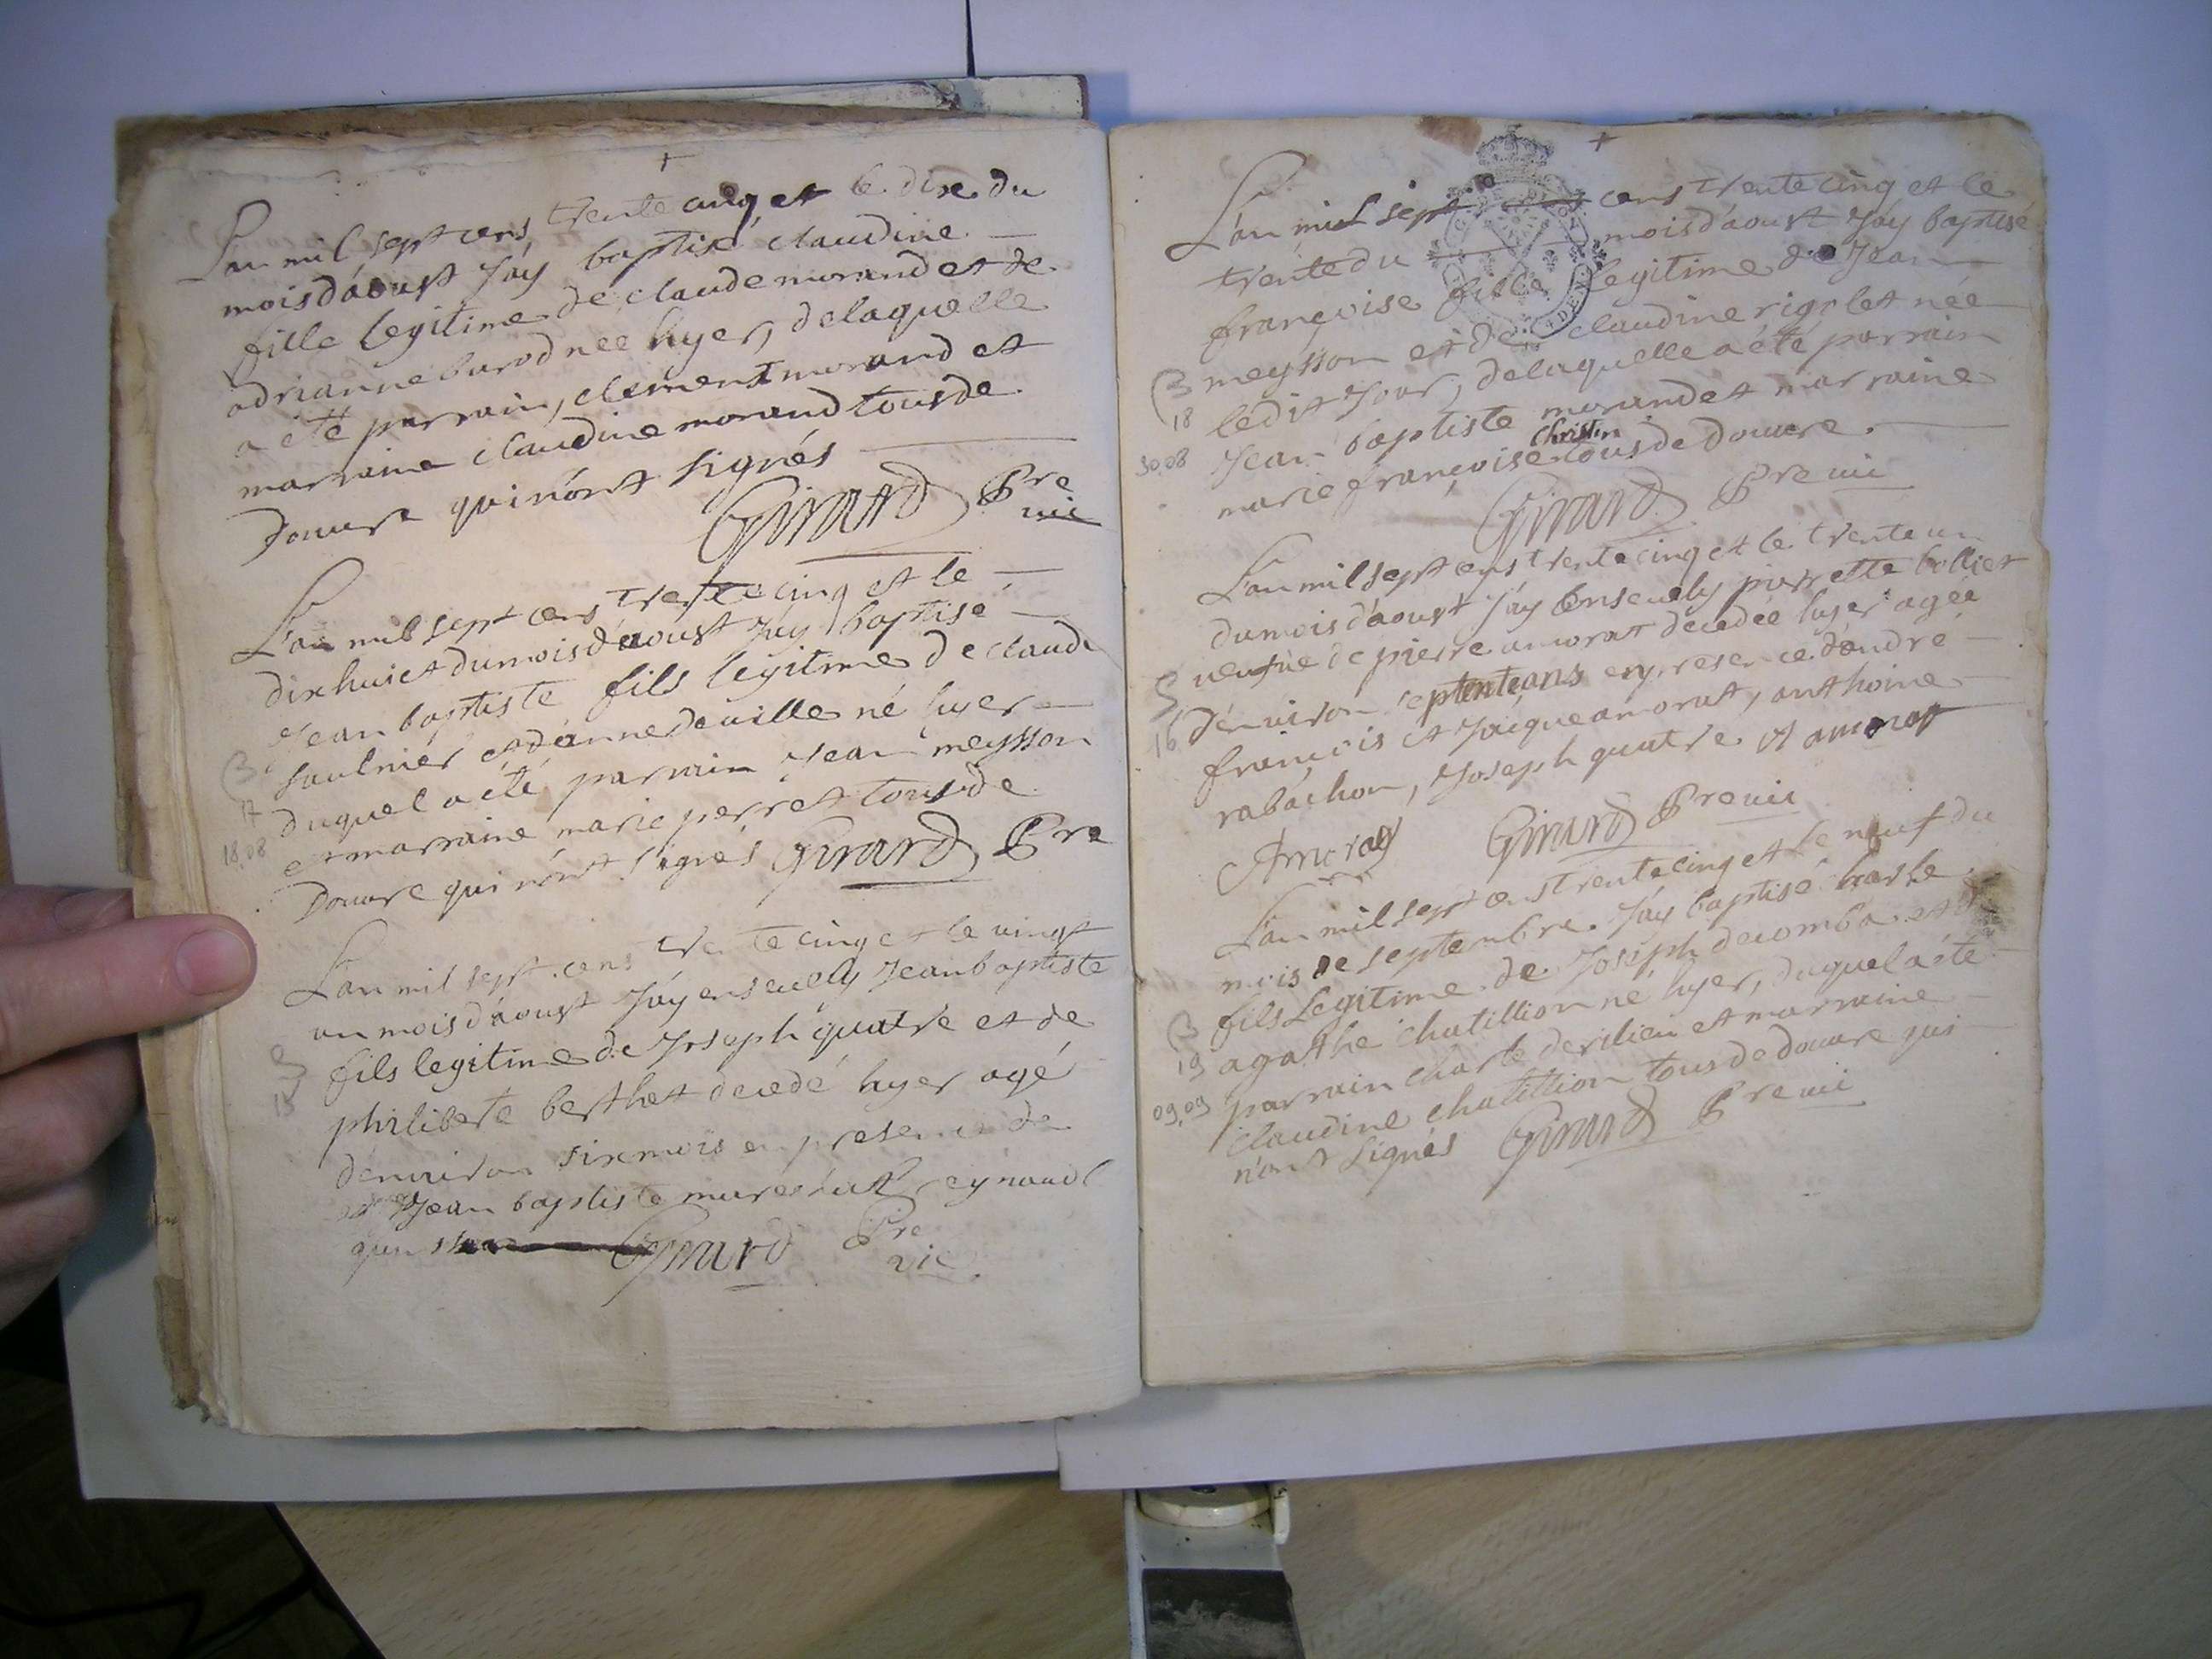 +
L'an mil sept cens trente cinq et le dix du
mois d'aoust J'ay baptisé claudine
fille legitime de claude morand et de
adrianne burod née hyer, de laquelle
a été parrain, clement morand et
marraine claudine morand tous de
Douvre qui n'ont signés
Girard Pre
vic
L'an mil sept cens trente cinq et le
dixhuict du mois d'aoust J'ay baptisé
Jean baptiste fils legitime de claude
saulnier et d'anne deville né hyer
B
17
18.08
duquel a été parrain Jean meysson
et marraine marie perret tous de
Douvre qui n'ont signés Girard Pre
L'an mil sept cens trente cinq et le vingt
un mois d'aoust J'ay ensevely Jean baptiste
fils legitime de Joseph quatre et de
S
15
philiberte berthet decedé hyer agé
d'environ six mois en presence de
Jean baptiste mureshat reynaud
Girard Pre
vic
+
L'an mil sept cens trente cinq et le
trente du mois d'aoust J'ay baptisé
françoise fille legitime de Jean
meysson et de claudine rigolet née
B
18
30.08
ledit Jour, de laquelle a été parrain
Jean baptiste morand et marraine
christin
marie françoise tous de Douvre.
Girard Pre vic
L'an mil sept cens trente cinq et le trente un
du mois d'aoust J'ay ensevely pierrette bolliet
veufue de pierre amorat decedée hyer agée
S
16
d'environ septente ans en presence d'andré
françois et Jacque amorat, anthoine
rabachon, Joseph quatre et amorat
Amorat Girard Pre vic
L'an mil sept cens trente cinq et le neuf du
mois de septembre J'ay baptisé charle
fils Legitime de Joseph decomba et d'
agathe chatillion né hyer, duquel a été
B
19
09.09
parrain charle derilieu et marraine
claudine chatillion tous de douvre qui
n'ont signés Girard Pre vic